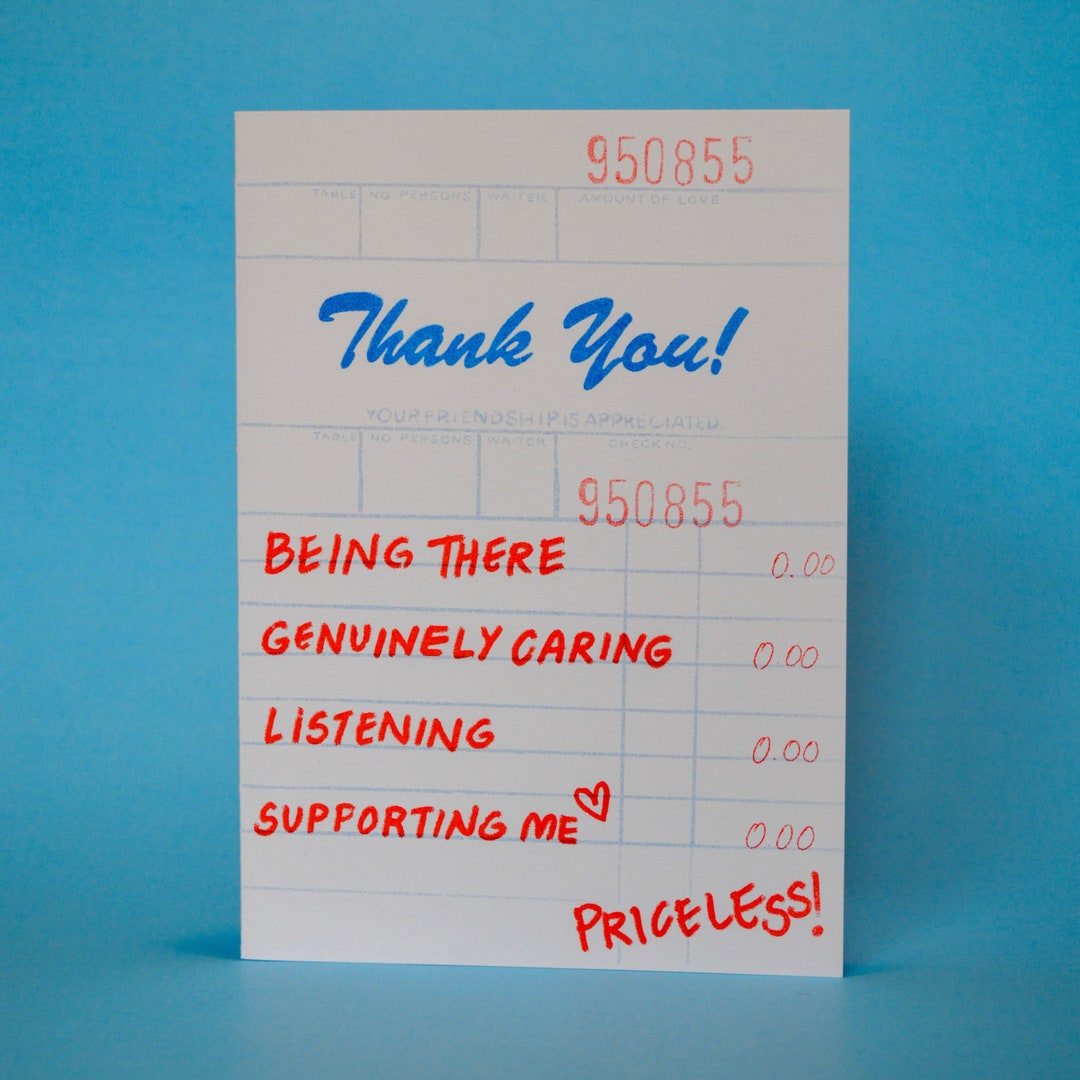 950855
TABLE NO. PERSONS WAITER AMOUNT OF LOVE
Thank You!
YOUR FRIENDSHIP IS APPRECIATED.
TABLE NO. PERSONS WAITER CHECK NO.
950855
BEING THERE 0.00
GENUINELY CARING 0.00
LISTENING 0.00
SUPPORTING ME 0.00
PRICELESS!